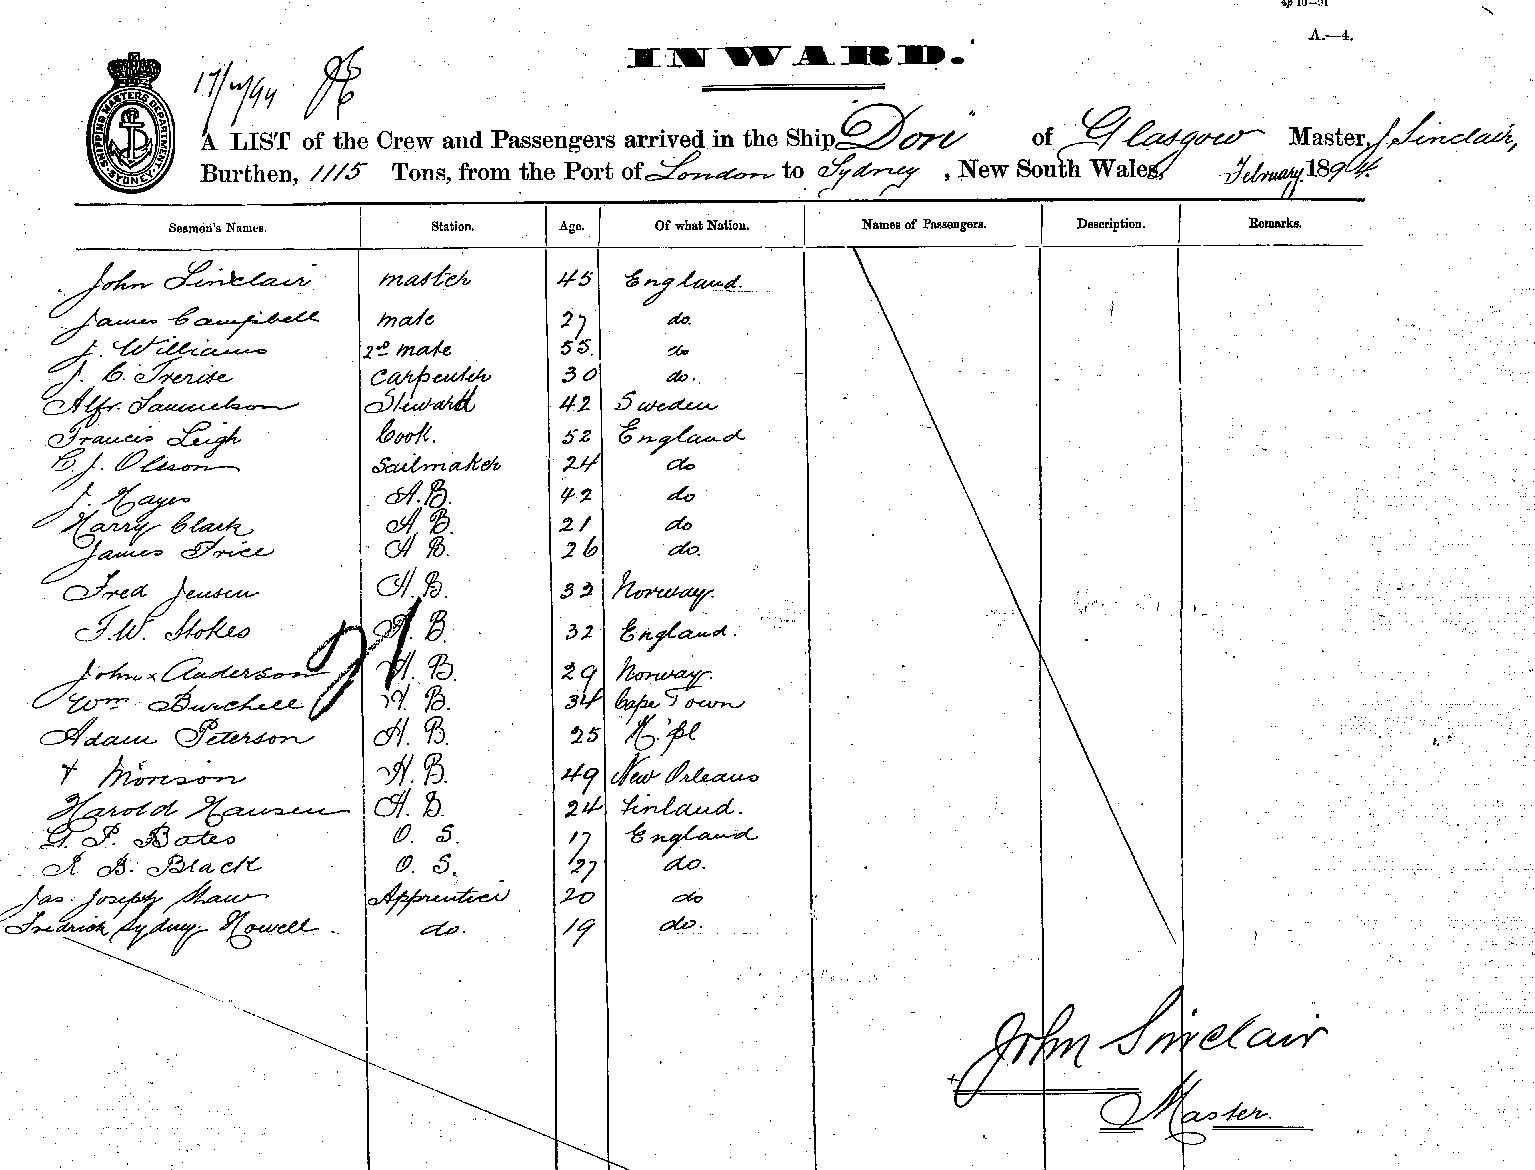 A.—4.
INWARD.
SHIPPING MASTERS DEPARTMENT SYDNEY
A LIST of the Crew and Passengers arrived in the Ship Dori of Glasgow Master, J. Sinclair,
Burthen, 1115 Tons, from the Port of London to Sydney, New South Wales, February 1894.
Seamen's Names. Station. Age. Of what Nation. Names of Passengers. Description. Remarks.
John Sinclair master 45 England.
James Campbell mate 27 do.
J. Williams 2nd mate 55 do
J. C. Trerise Carpenter 30 do.
Alfr. Samuelson Steward 42 Sweden
Francis Leigh Cook. 52 England
C. J. Olsson Sailmaker 24 do
J. Hayes A.B. 42 do
Harry Clark A B. 21 do
James Price A B. 26 do.
Fred Jensen A.B. 32 Norway.
T.W. Stokes A. B. 32 England.
John x Anderson A. B. 29 Norway.
21
Wm Burchell A. B. 34 Cape Town
Adam Peterson A. B. 25
x Morison A. B. 49 New Orleans
Harold Hansen A. B. 24 Finland.
G. P. Bates O. S. 17 England
A. B. Black O. S. 27 do.
Jas. Joseph Shaw Apprentice 20 do
Fredrick Sydney Nowell. do. 19 do.
John Sinclair
Master.